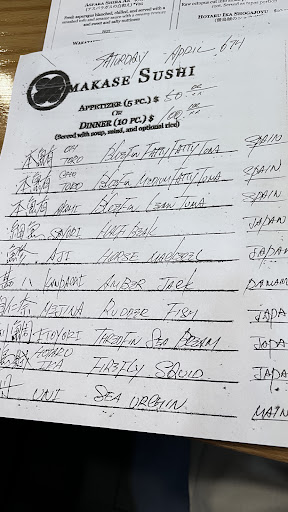 ASPARA SHIDA AE
Fresh asparagus blanched, chilled, and served with a
HOTARU IKA SHOGAJOYU
SATURDAY APRIL 6TH
OMAKASE SUSHI
APPETIZER (5 PC.) $ 50.00
OR
DINNER (10 PC.) $ 100.00
(Served with soup, salad, and optional rice)
本鮪 OH TORO BLUEFIN FATTY FATTY TUNA SPAIN
本鮪 CHU TORO BLUEFIN MEDIUM FATTY TUNA SPAIN
本鮪 AKAMI BLUEFIN LEAN TUNA SPAIN
SAYORI HALF BEAK JAPAN
AJI HORSE MACKEREL JAPAN
KANPACHI AMBER JACK PANAM
MEJINA RUDDER FISH JAPA
ITOYORI THREDFIN SEA BREAM JAPA
HOTARU IKA FIREFLY SQUID JAPA
UNI SEA URCHIN MAIN